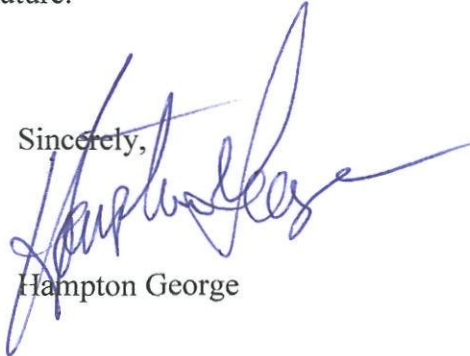 uture.
Sincerely,
Hampton George
Hampton George